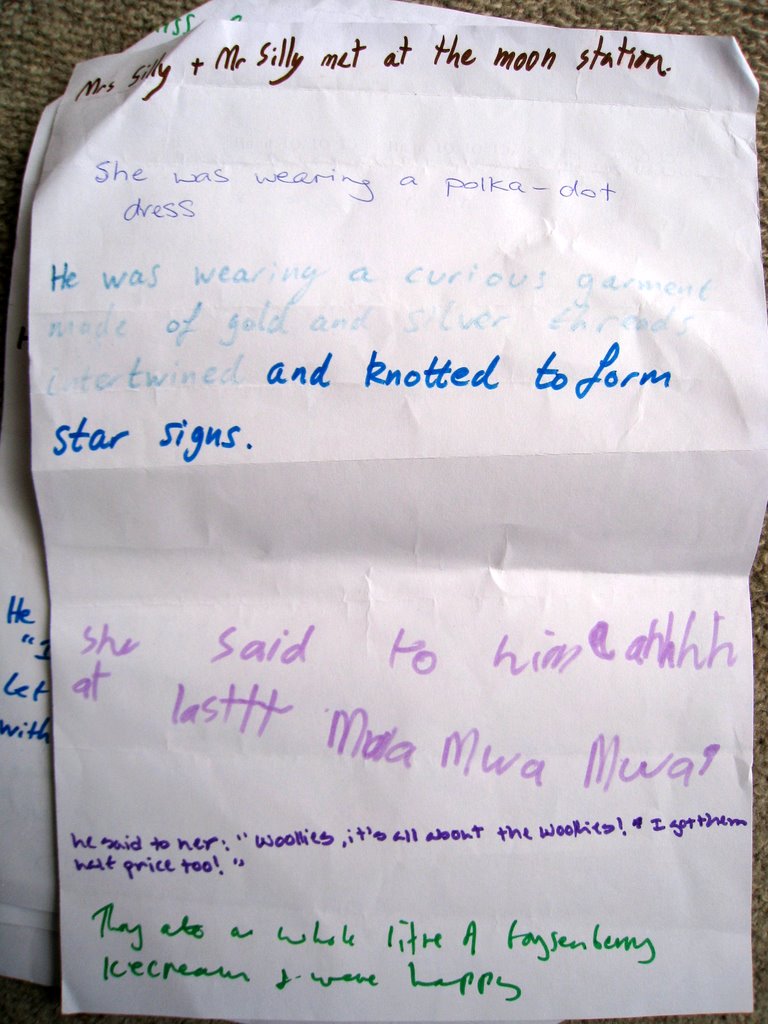 iss
Mrs Silly + Mr Silly met at the moon station.
She was wearing a polka-dot
dress
He was wearing a curious garment
made of gold and silver threads
intertwined and knotted to form
star signs.
He
"I
Let
with
She said to him "ahhhh
at lasttt Mwa Mwa Mwa"
he said to her: "Woollies, it's all about the Woollies! I got them
half price too!"
They ate a whole litre of boysenberry
icecream & were happy